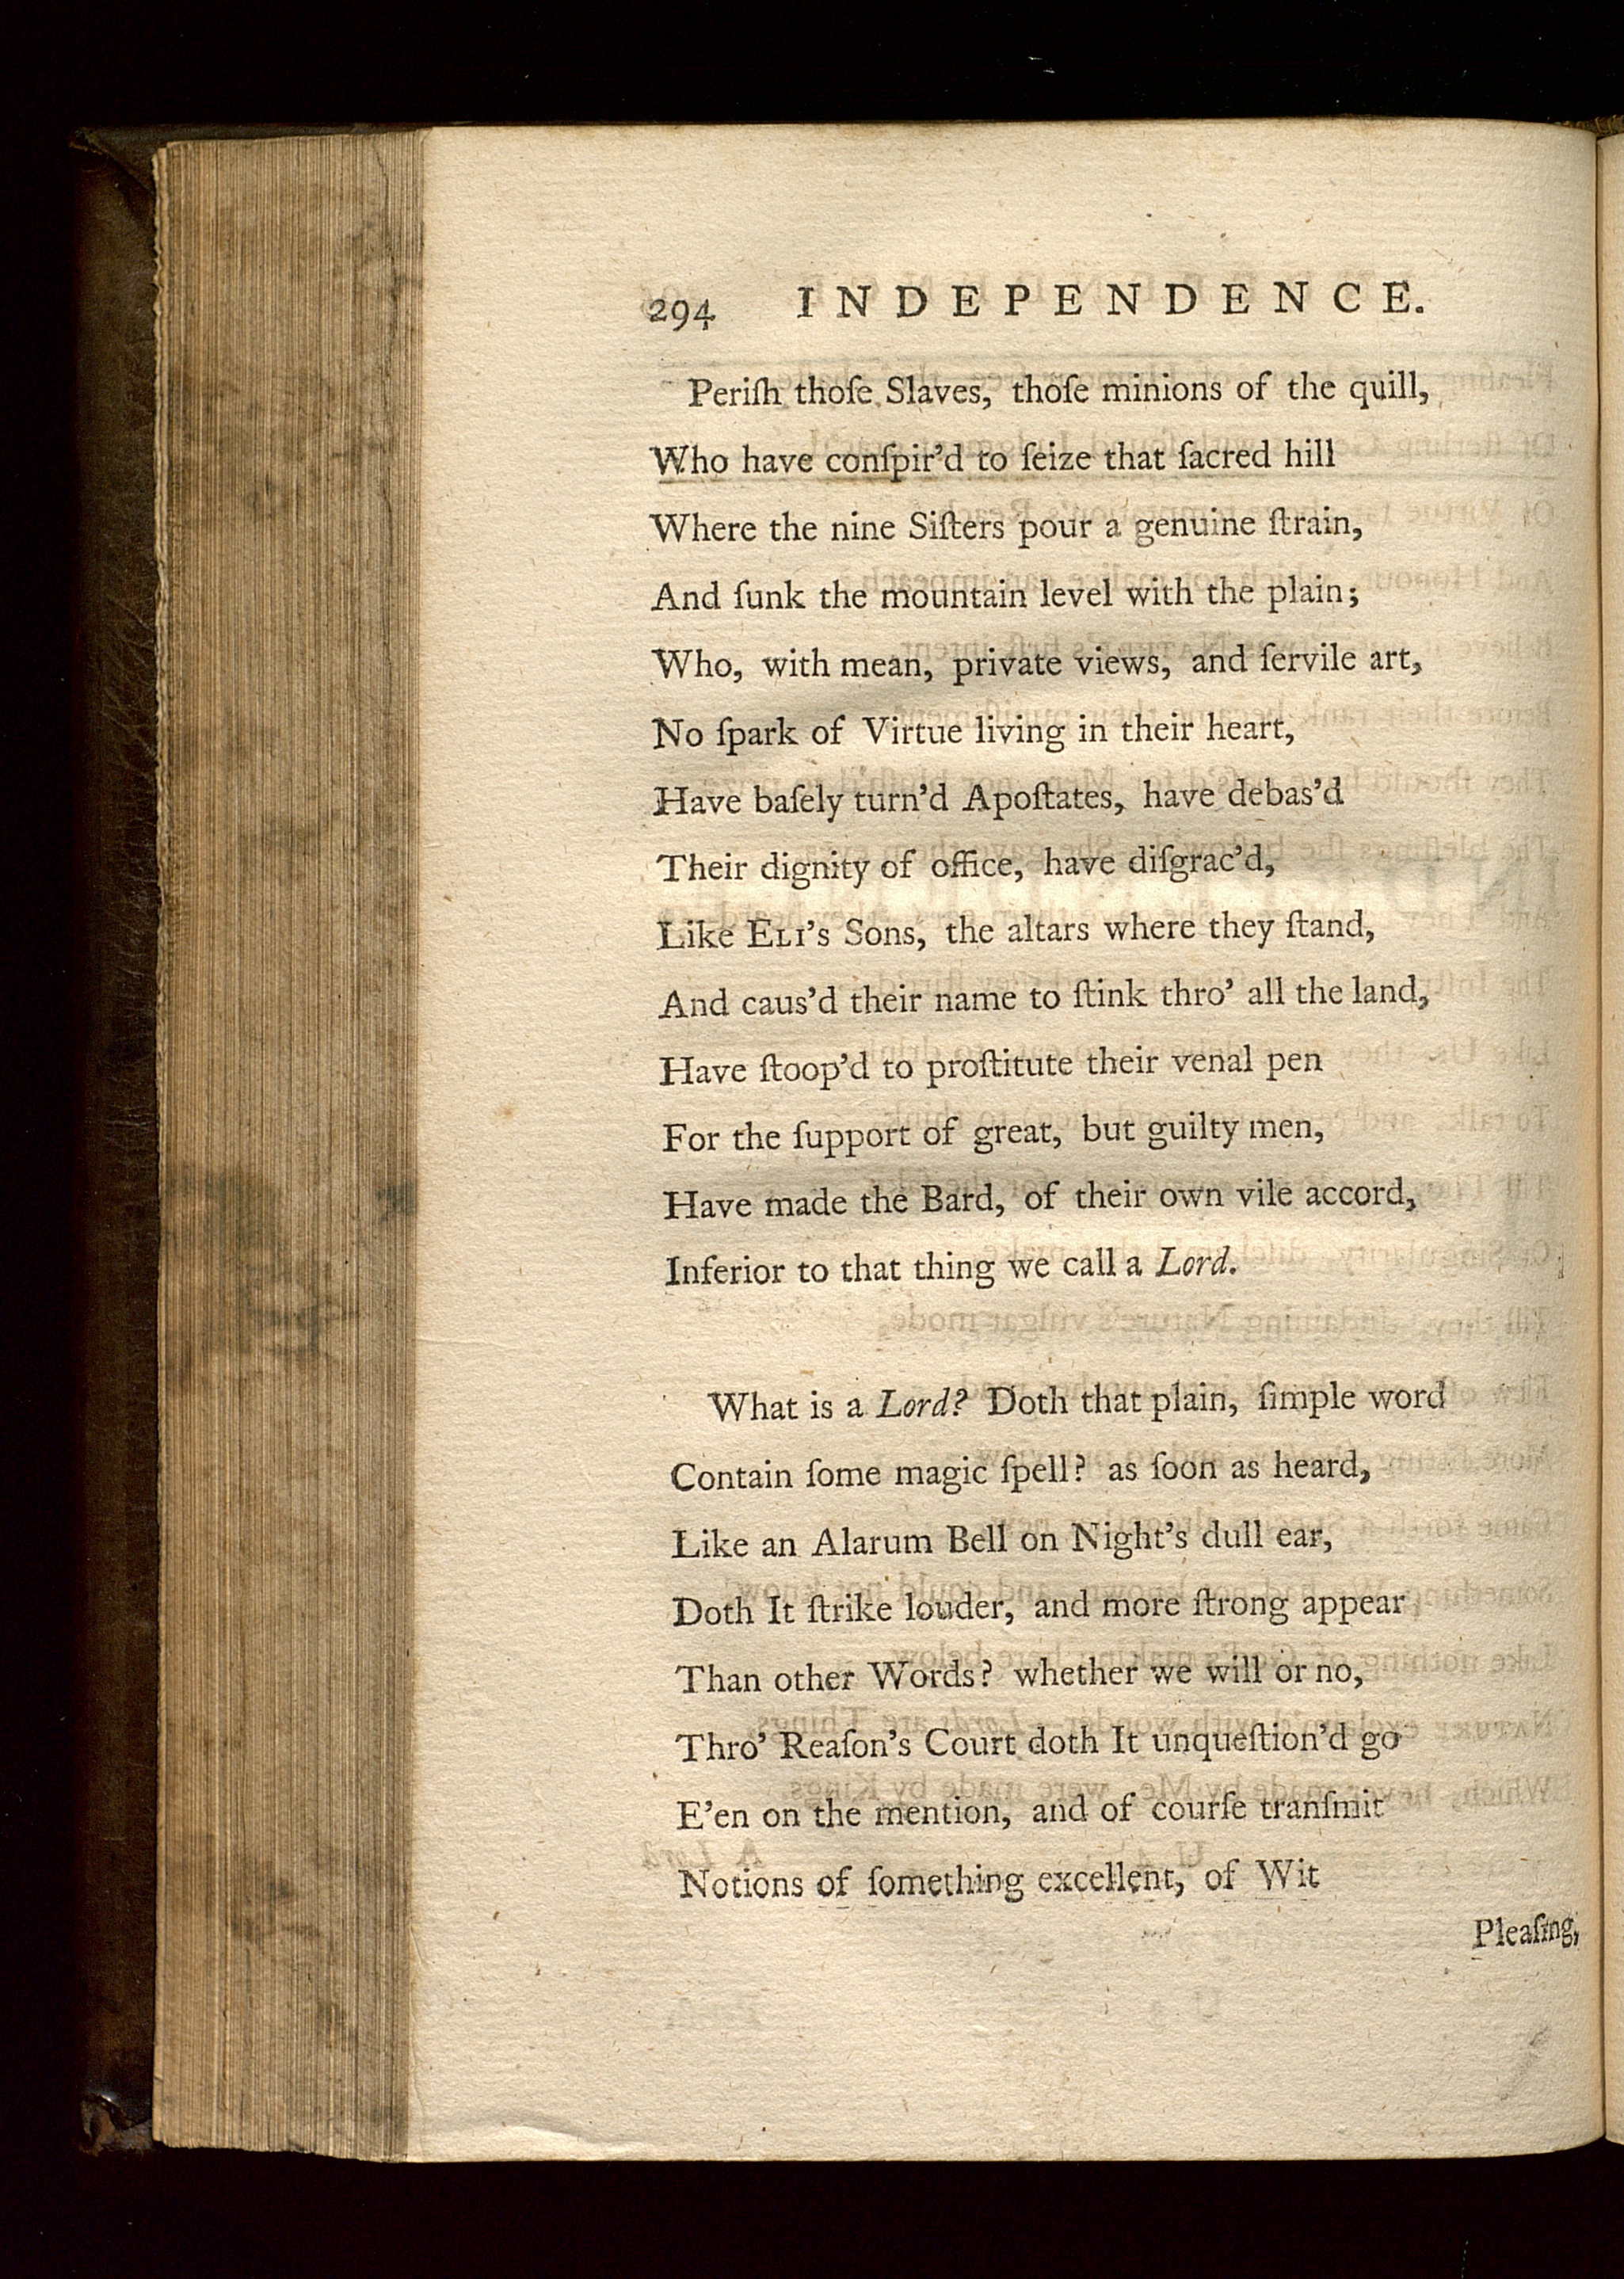 294 INDEPENDENCE.
Periſh thoſe Slaves, thoſe minions of the quill,
Who have conſpir'd to ſeize that ſacred hill
Where the nine Siſters pour a genuine ſtrain,
And ſunk the mountain level with the plain;
Who, with mean, private views, and ſervile art,
No ſpark of Virtue living in their heart,
Have baſely turn'd Apoſtates, have debas'd
Their dignity of office, have diſgrac'd,
Like ELI's Sons, the altars where they ſtand,
And caus'd their name to ſtink thro' all the land,
Have ſtoop'd to proſtitute their venal pen
For the ſupport of great, but guilty men,
Have made the Bard, of their own vile accord,
Inferior to that thing we call a Lord.
What is a Lord? Doth that plain, ſimple word
Contain ſome magic ſpell? as ſoon as heard,
Like an Alarum Bell on Night's dull ear,
Doth It ſtrike louder, and more ſtrong appear
Than other Words? whether we will or no,
Thro' Reaſon's Court doth It unqueſtion'd go
E'en on the mention, and of courſe tranſmit
Notions of ſomething excellent, of Wit
Pleaſing,